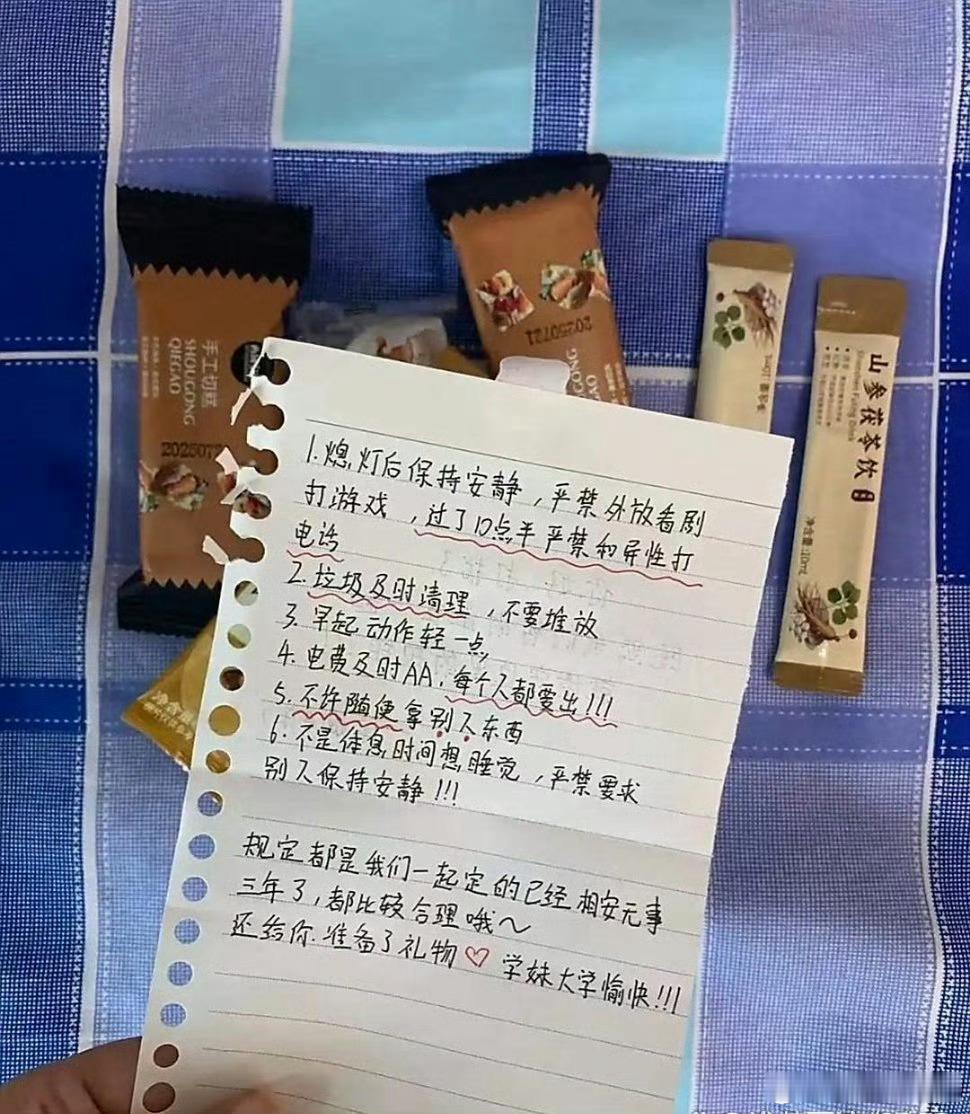 手工切糕
SHOUGONG
QIEGAO
20250721
山参茯苓饮
净含量:10mL
1.熄灯后保持安静，严禁外放看剧
打游戏，过了12点半严禁和异性打
电话
2.垃圾及时清理，不要堆放
3.早起动作轻一点
4.电费及时AA.每个人都要出!!!
5.不许随便拿别人东西
6.不是休息时间想睡觉，严禁要求
别人保持安静!!!
规定都是我们一起定的已经相安无事
三年了,都比较合理哦～
还给你准备了礼物♡ 学妹大学愉快!!!